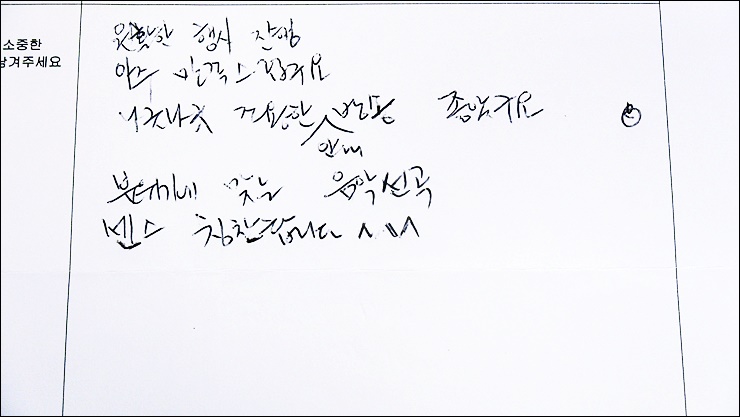 소중한
남겨주세요
원활한 행사 진행
아주 만족스럽구요
나긋나긋 조용한 안내 반응 좋았구요
분위기에 맞는 음악선곡
센스 칭찬합니다 ^^